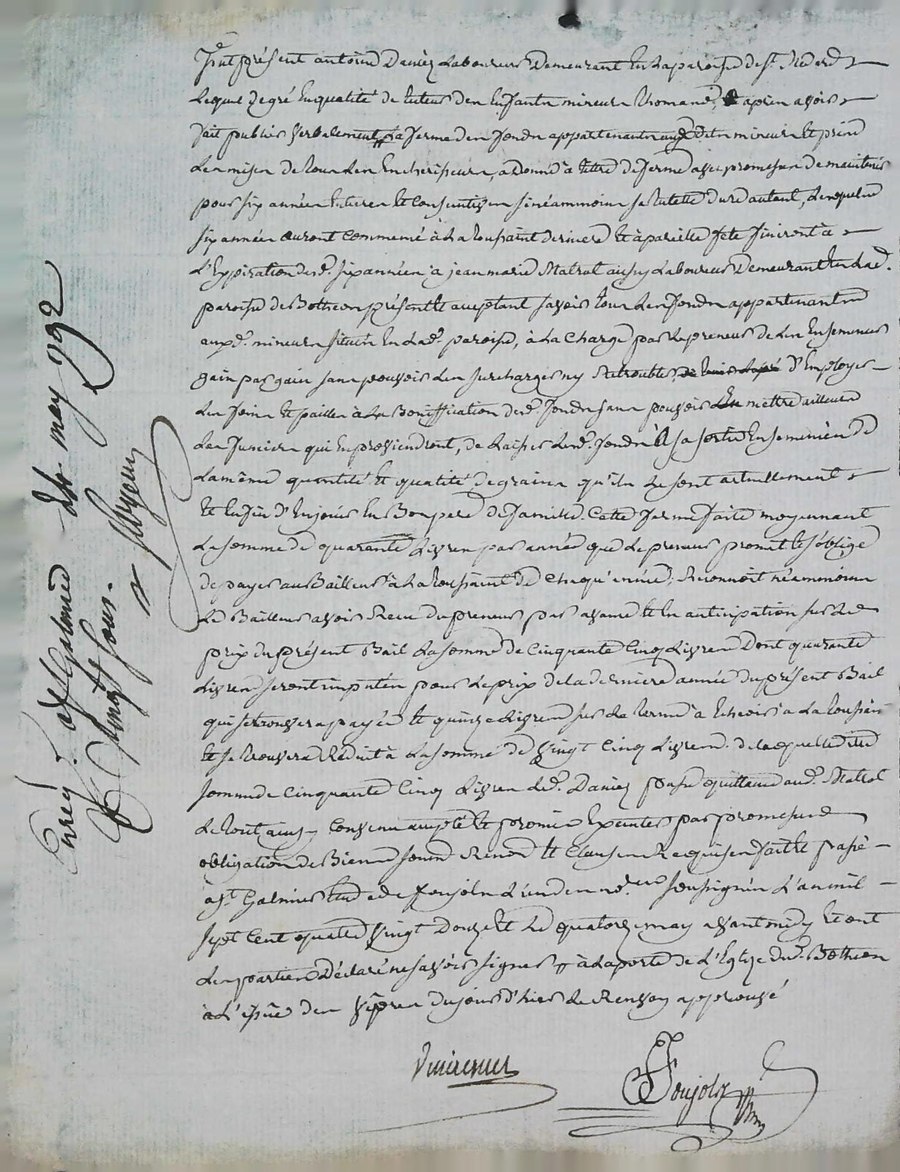 Fut présent antoine Daniez Laboureur Demeurant En la paroisse de st Medard
Lequel de gré En qualité de tuteur des Enfants mineurs apres avoir
fait publier verbalement La ferme des fonds appartenants auxd. mineurs Et prins
Les mises de tous Les Encherisseurs, a donné à titre de ferme avec promesse de maintenir
pour six années Entieres Et Consecutives sinéammoins sa tutelle dure autant, Lesquelles
six années auront commencé à La toussaint derniere Et à pareille fete finiront à
L'Expiration desd. six années à jean marie Matrat aussy Laboureur Demeurant En Lad.
paroisse de Botheon présent Et acceptant savoir tous Les fonds appartenants
auxd. mineurs situés En Lad. paroisse, à La charge par Le preneur de Les Ensemencer
gain par gain sans pouvoir Les surcharger ny Retroubler, D'Employer
Les foins Et pailles à La Bonniffication desd. fonds sans pouvoir mettre ailleurs
Les fumiers qui En proviendront, de Laisser Lesd. fonds à sa sortie Ensemencés de
La même quantité Et qualité de grains qu'ils Le sont actuellement
Et Enfin D'En jouir En Bon pere de famille. Cette ferme faite moyennant
La somme de quarante Livres par année que Le preneur promet Et s'oblige
de payer au Bailleur à La toussaint de chaqu'année, Reconnoit néammoins
Le Bailleur avoir Recu du preneur par avance Et En anticipation sur Le
prix du présent Bail La somme de Cinquante Cinq Livres Dont quarante
Livres seront imputés pour Le prix de La derniere année du présent Bail
qui se trouvera payée Et quinze Livres sur Le terme à Echeoir à La toussaint
Et se trouvera Réduit à La somme de vingt Cinq Livres. de laquelle ditte
somme de Cinquante Cinq Livres Led. Daniez passe quittance aud. Matrat
Le tout ainsy Convenu accepté Et promis Exécuter par promesse
obligation de Biens soumis Renon. Et Clauses Requises fait Et passé
à st. Galmier Etude de foujols L'un des nores soussignés L'an mil
sept Cent quatre vingt Douze Et Le quatorze may avant midy Et ont
Les parties Déclaré ne savoir signer à La porte de L'Eglize dud. Botheon
à L'issue des vêpres du jour d'hier Le Renvoy approuvé
Foujols
Enreg. à st Galmier Le may 1792
Vingt sous.